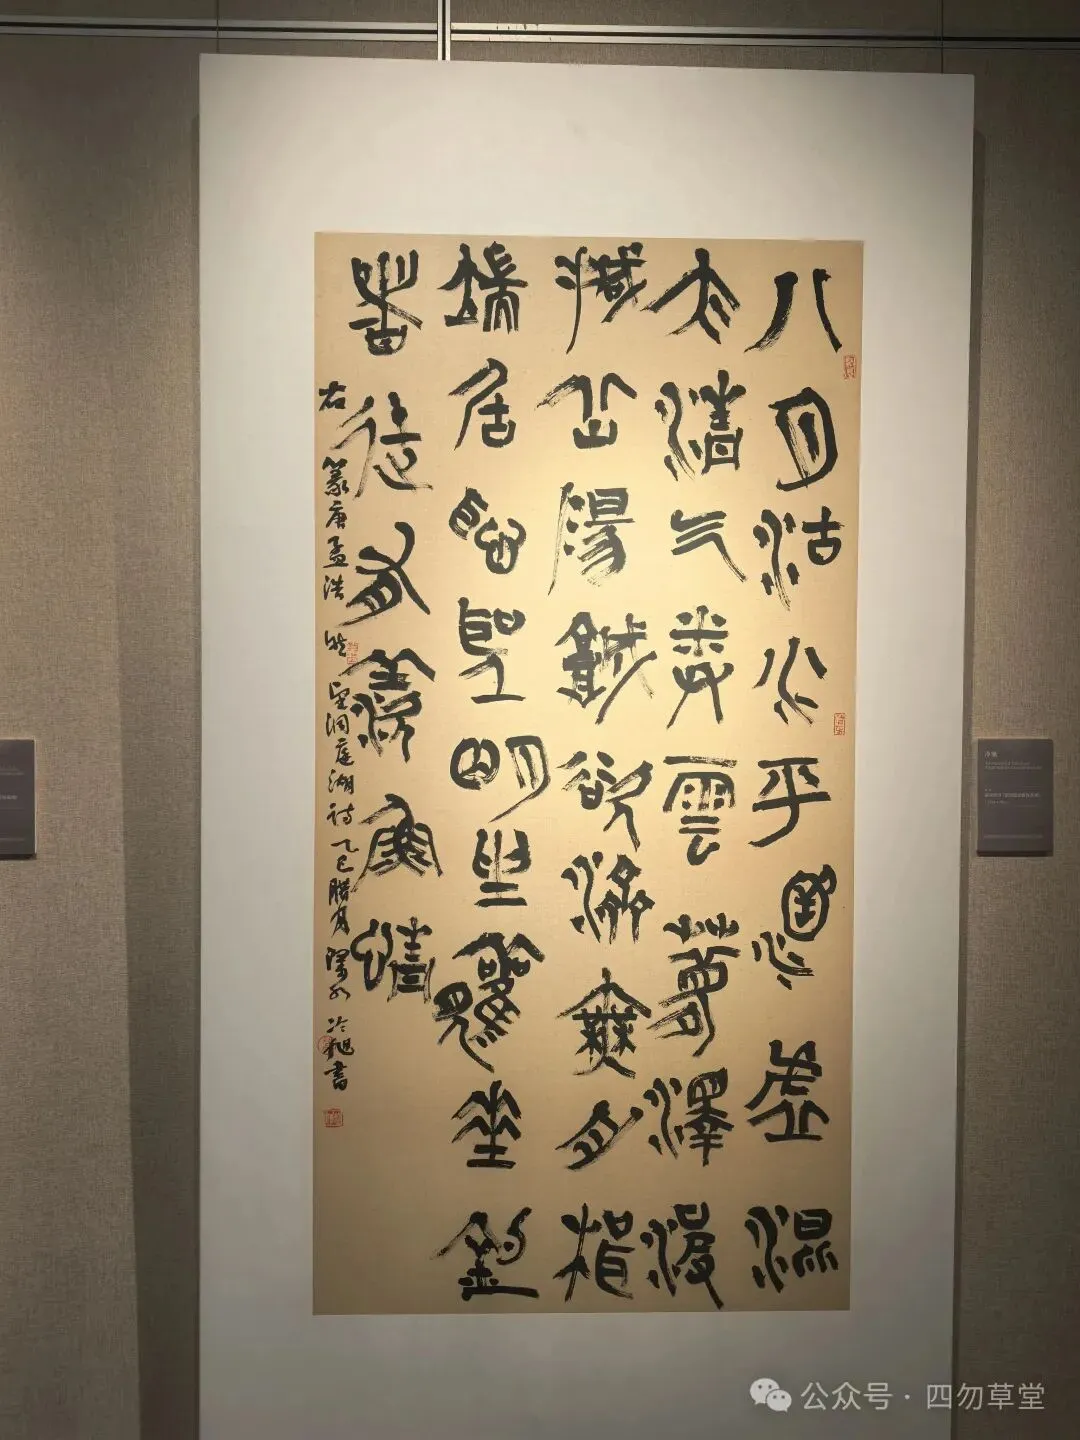 八月湖水平涵虛混
太清气蒸雲夢澤波
撼岳陽城欲濟無舟楫
端居恥聖明坐觀垂釣
者徒有羨魚情
右篆唐孟浩然望洞庭湖诗乙巳腊月深圳冷旭書
公众号·四勿草堂